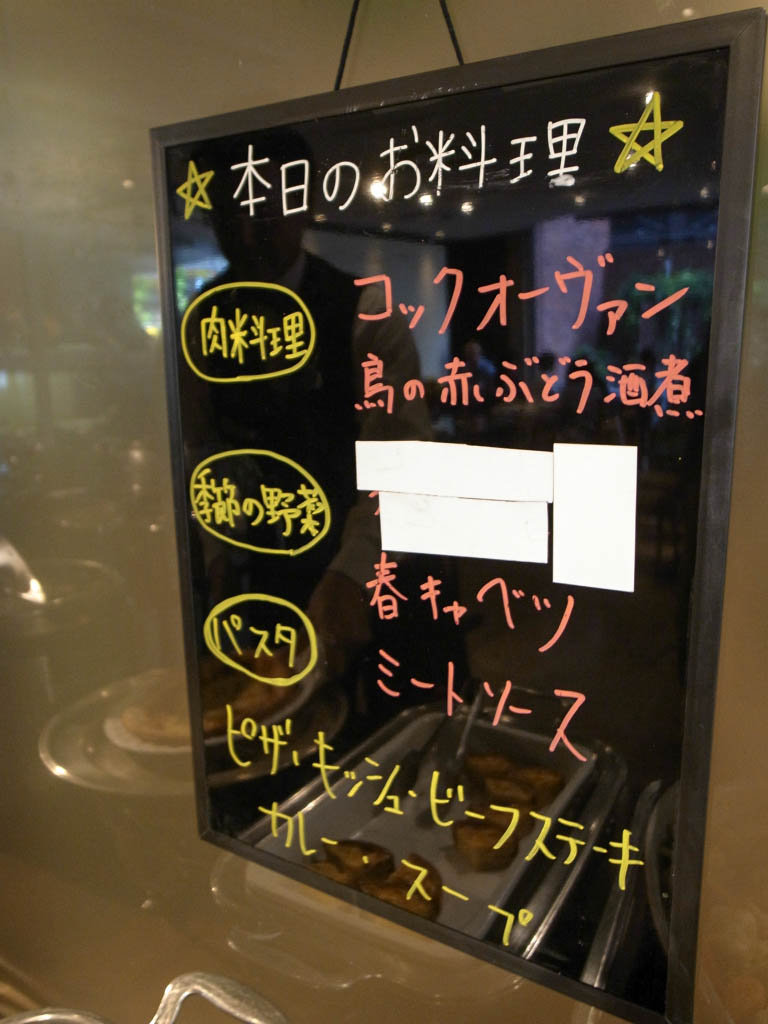 ☆ 本日のお料理 ☆
肉料理
コックオーヴァン
鳥の赤ぶどう酒煮
季節の野菜
春キャベツ
パスタ
ミートソース
ピザ・キッシュ・ビーフステーキ
カレー・スープ